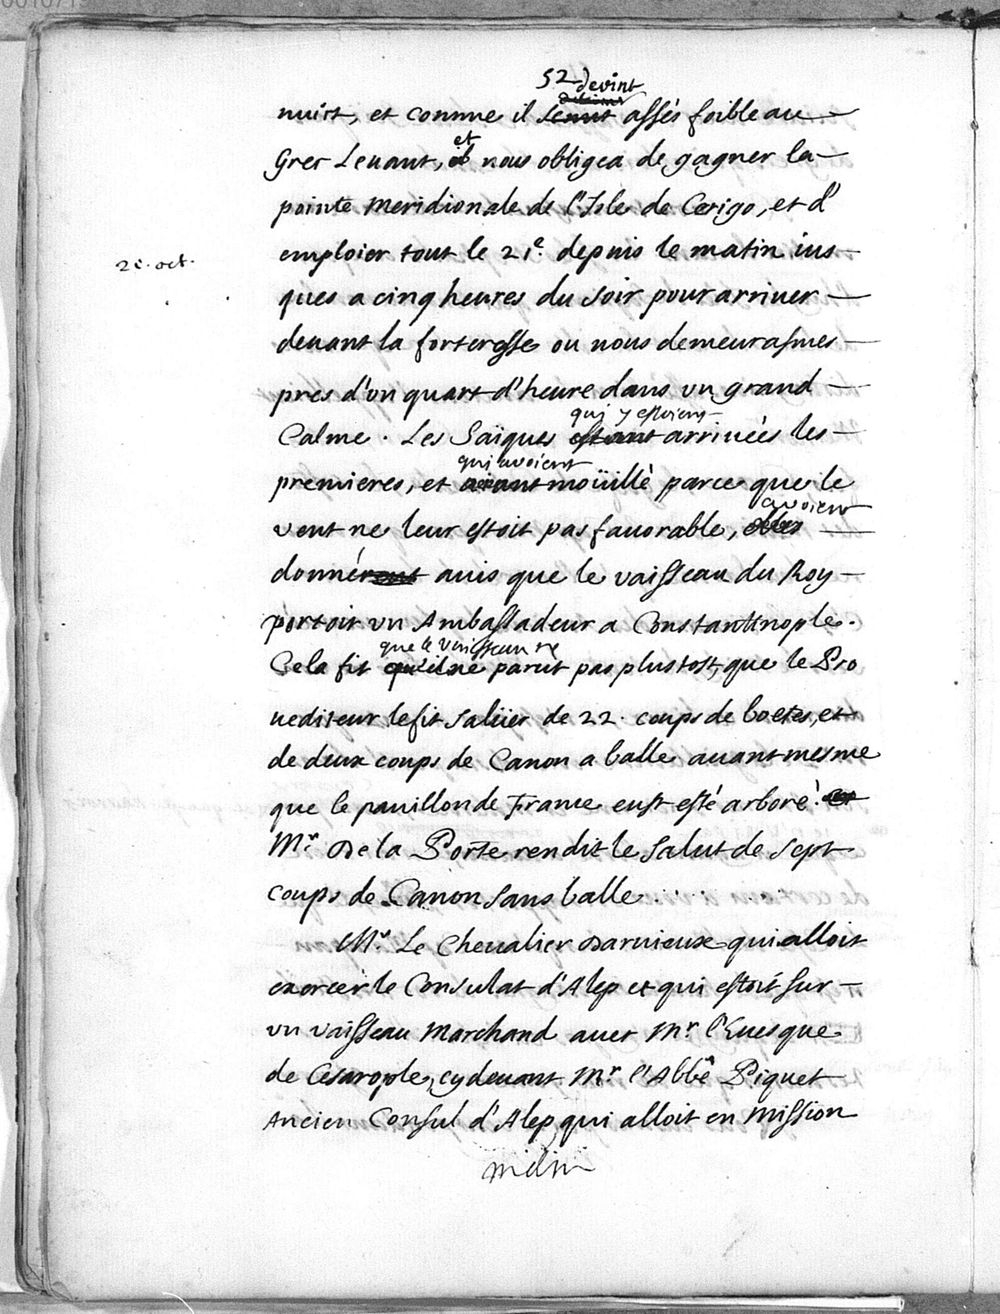 52
devint
nuict, et comme il assés foible au
Grec Levant, et nous obligea de gagner la
pointe meridionale de l'Isle de Cerigo, et d'
emploier tout le 21e. depuis le matin ius-
2i. oct.
ques a cinq heures du soir pour arriuer
deuant la forteresse ou nous demeurasmes
pres d'vn quart d'heure dans vn grand
qui y estoient
Calme. Les Saïques estant arriuées les
qui avoient
premieres, et aiant moüillé parce que le
avoient
vent ne leur estoit pas fauorable, elles
donnérent auis que le vaisseau du Roy
portoit vn Ambassadeur a Constantinople.
que le vaisseau ne
Cela fit qu'il ne parut pas plustost, que le Pro
uediteur le fit salüer de 22. coups de boetes, et
de deux coups de Canon a balle auant mesme
que le pauillon de France eust esté arboré. et
Mr. De la Porte rendit le salut de sept
coups de Canon sans balle
Mr. Le Cheualier Daruieux qui alloit
exercer le Consulat d'Alep et qui estoit sur
vn vaisseau Marchand auec Mr. l'Euesque
de Cesarople, cy deuant Mr. l'Abbé Piquet
Ancien Consul d'Alep qui alloit en Mission